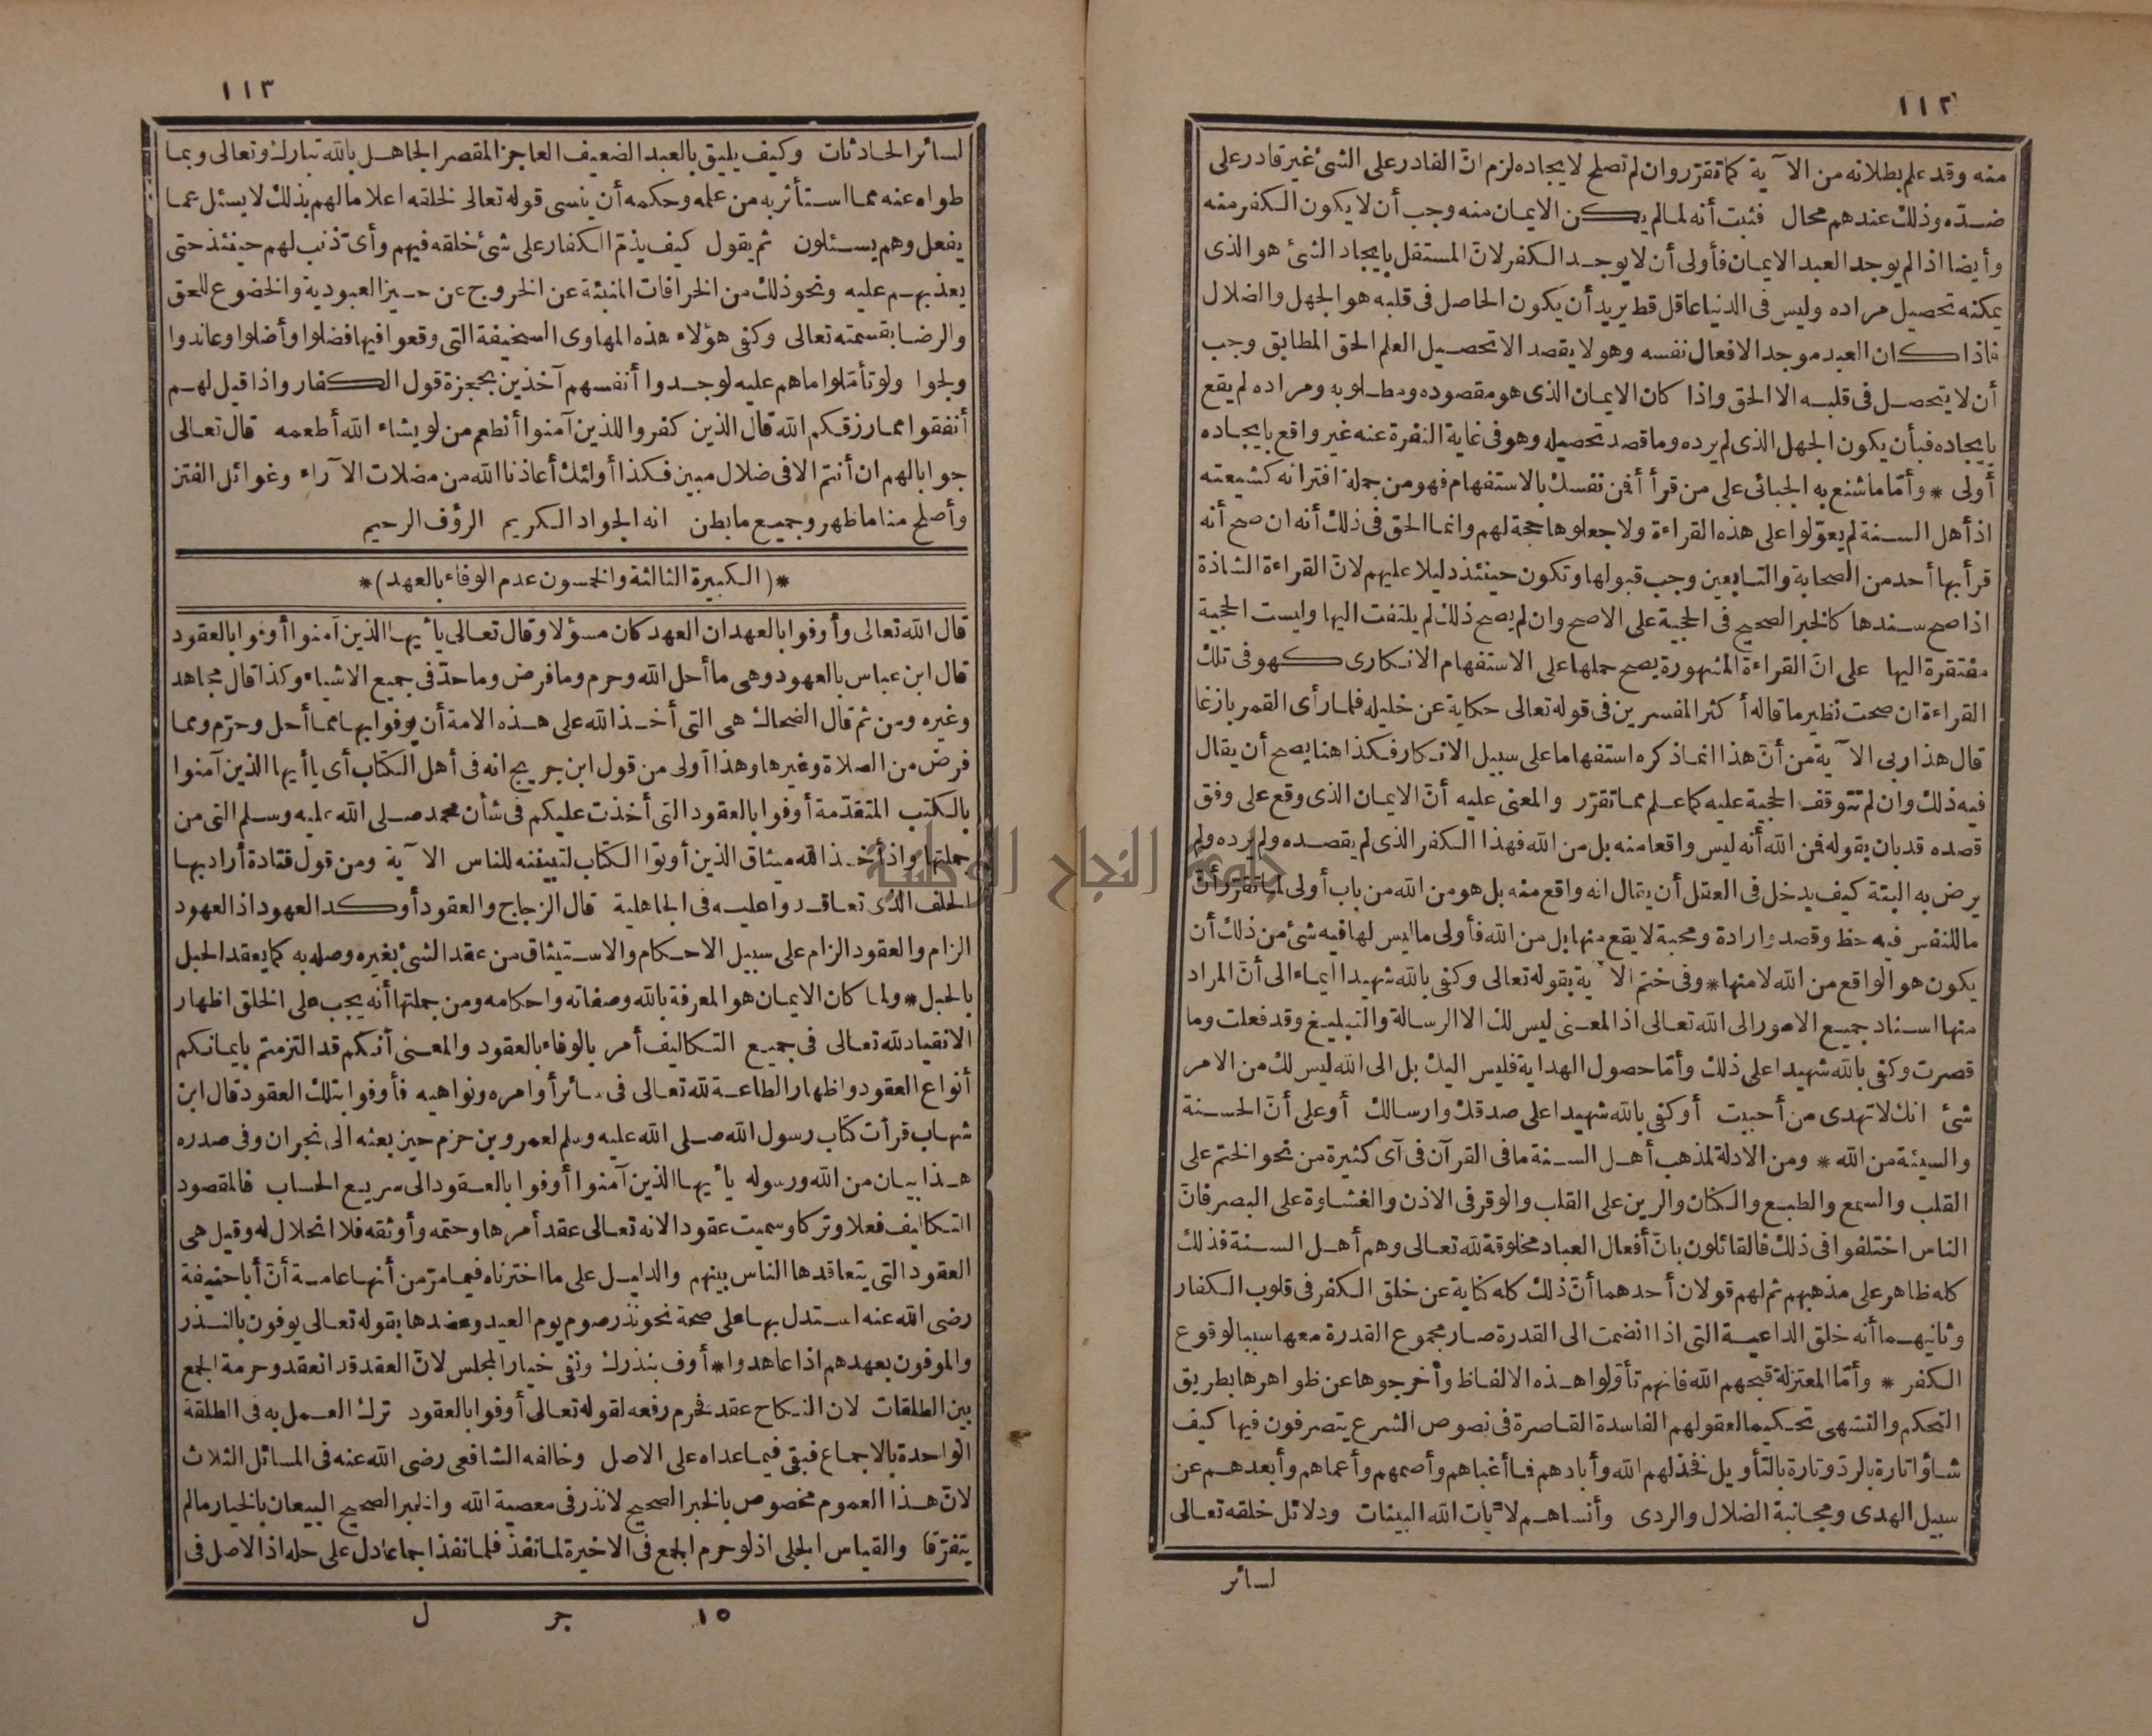 ١١٢
منه وقد علم بطلانه من الآية كما تقرّر وان لم تصلح لايجاده لزم انّ القادر على الشئ غير قادر على
ضدّه وذلك عندهم محال فثبت أنه لما لم يكن الايمان منه وجب أن لا يكون الكفر منه
وأيضا اذا لم يوجد العبد الايمان فأولى أن لا يوجد الكفر لانّ المستقل بايجاد الشئ هو الذى
يمكنه تحصيل مراده وليس فى الدنيا عاقل قط يريد أن يكون الحاصل فى قلبه هو الجهل والضلال
فاذا كان العبد موجد الافعال نفسه وهو لا يقصد الا تحصيل العلم الحق المطابق وجب
أن لا يتحصل فى قلبه الا الحق واذا كان الايمان الذى هو مقصوده ومطلوبه ومراده لم يقع
بايجاده فبأن يكون الجهل الذى لم يرده وما قصد تحصيله وهو فى غاية النفرة عنه غير واقع بايجاده
أولى * وأمّا ما شنع به الجبائى على من قرأ أفمن نفسك بالاستفهام فهو من جملة افترائه كشيعته
اذ أهل السنة لم يعوّلوا على هذه القراءة ولا جعلوها حجة لهم وانما الحق فى ذلك أنه ان صح أنه
قرأ بها أحد من الصحابة والتابعين وجب قبولها وتكون حينئذ دليلا عليهم لانّ القراءة الشاذة
اذا صح سندها كالخبر الصحيح فى الحجية على الاصح وان لم يصح ذلك لم يلتفت اليها وليست الحجية
مفتقرة اليها على انّ القراءة المشهورة يصح حملها على الاستفهام الانكارى كهو فى تلك
القراءة ان صحت نظير ما قاله أكثر المفسرين فى قوله تعالى حكاية عن خليله فلما رأى القمر بازغا
قال هذا ربى الآية من أنّ هذا انما ذكره استفهاما على سبيل الانكار فكذا هنا يصح أن يقال
فيه ذلك وان لم تتوقف الحجية عليه كما علم مما تقرّر والمعنى عليه أنّ الايمان الذى وقع على وفق
قصده قد بان بقوله فمن الله أنه ليس واقعا منه بل من الله فهذا الكفر الذى لم يقصده ولم يرده ولم
يرض به البتة كيف يدخل فى العقل أن يقال انه واقع منه بل هو من الله من باب أولى لما تقرّر أنّ
ما للنفس فيه حظ وقصد وارادة ومحبة لا يقع منها بل من الله فأولى ما ليس لها فيه شئ من ذلك أن
يكون هو الواقع من الله لا منها * وفى ختم الآية بقوله تعالى وكفى بالله شهيدا ايماء الى أنّ المراد
منها اسناد جميع الامور الى الله تعالى اذ المعنى ليس لك الا الرسالة والتبليغ وقد فعلت وما
قصرت وكفى بالله شهيدا على ذلك وأمّا حصول الهداية فليس اليك بل الى الله ليس لك من الامر
شئ انك لا تهدى من أحببت أو كفى بالله شهيدا على صدقك وارسالك أو على أنّ الحسنة
والسيئة من الله * ومن الادلة لمذهب أهل السنة ما فى القرآن فى آى كثيرة من نحو الختم على
القلب والسمع والطبع والكنان والرين على القلب والوقر فى الاذن والغشاوة على البصر فانّ
الناس اختلفوا فى ذلك فالقائلون بانّ أفعال العباد مخلوقة لله تعالى وهم أهل السنة فذلك
كله ظاهر على مذهبهم ثم لهم قولان أحدهما أنّ ذلك كله كناية عن خلق الكفر فى قلوب الكفار
وثانيهما أنه خلق الداعية التى اذا انضمت الى القدرة صار مجموع القدرة معها سببا لوقوع
الكفر * وأمّا المعتزلة قبحهم الله فانهم تأوّلوا هذه الالفاظ وأخرجوها عن ظواهرها بطريق
التحكم والتشهى تحكيما لعقولهم الفاسدة القاصرة فى نصوص الشرع يتصرفون فيها كيف
شاؤا تارة بالردّ وتارة بالتأويل فخذلهم الله وأبادهم فما أغباهم وأصمهم وأعماهم وأبعدهم عن
سبيل الهدى ومجانبة الضلال والردى وأنساهم لآيات الله البينات ودلائل خلقه تعالى
لسائر
١١٣
لسائر الحادثات وكيف يليق بالعبد الضعيف العاجز المقصر الجاهل بالله تبارك وتعالى وبما
طواه عنه مما استأثر به من علمه وحكمه أن ينسى قوله تعالى لخلقه اعلاما لهم بذلك لا يسئل عما
يفعل وهم يسئلون ثم يقول كيف يذمّ الكفار على شئ خلقه فيهم وأىّ ذنب لهم حينئذ حتى
يعذبهم عليه ونحو ذلك من الخرافات المنبئة عن الخروج عن حيز العبودية والخضوع للحق
والرضا بقسمته تعالى وكفى هؤلاء هذه المهاوى السخيفة التى وقعوا فيها فضلوا وأضلوا وعاندوا
ولجوا ولو تأمّلوا ما هم عليه لوجدوا أنفسهم آخذين بحجزة قول الكفار واذا قيل لهم
أنفقوا مما رزقكم الله قال الذين كفروا للذين آمنوا أنطعم من لو يشاء الله أطعمه قال تعالى
جوابا لهم ان أنتم الا فى ضلال مبين فكذا أولئك أعاذنا الله من مضلات الآراء وغوائل الفتن
وأصلح منا ما ظهر وجميع ما بطن انه الجواد الكريم الرؤف الرحيم
*(الكبيرة الثالثة والخمسون عدم الوفاء بالعهد)*
قال الله تعالى وأوفوا بالعهد ان العهد كان مسؤلا وقال تعالى يا أيها الذين آمنوا أوفوا بالعقود
قال ابن عباس بالعهود وهى ما أحل الله وحرم وما فرض وما حدّ فى جميع الاشياء وكذا قال مجاهد
وغيره ومن ثم قال الضحاك هى التى أخذ الله على هذه الامة أن يوفوا بها مما أحل وحرّم ومما
فرض من الصلاة وغيرها وهذا أولى من قول ابن جريج انه فى أهل الكتاب أى يا أيها الذين آمنوا
بالكتب المتقدّمة أوفوا بالعقود التى أخذت عليكم فى شأن محمد صلى الله عليه وسلم التى من
جملتها واذ أخذ الله ميثاق الذين أوتوا الكتاب لتبيننه للناس الآية ومن قول قتادة أراد بها
الحلف الذى تعاقدوا عليه فى الجاهلية قال الزجاج والعقود أوكد العهود اذ العهود
الزام والعقود الزام على سبيل الاحكام والاستيثاق من عقد الشئ بغيره وصله به كما يعقد الحبل
بالحبل * ولما كان الايمان هو المعرفة بالله وصفاته واحكامه ومن جملتها أنه يجب على الخلق اظهار
الانقياد لله تعالى فى جميع التكاليف أمر بالوفاء بالعقود والمعنى أنكم قد التزمتم بايمانكم
أنواع العقود واظهار الطاعة لله تعالى فى سائر أوامره ونواهيه فأوفوا بتلك العقود قال ابن
شهاب قرأت كتاب رسول الله صلى الله عليه وسلم لعمرو بن حزم حين بعثه الى نجران وفى صدره
هذا بيان من الله ورسوله يا أيها الذين آمنوا أوفوا بالعقود الى سريع الحساب فالمقصود
التكاليف فعلا وتركا وسميت عقودا لانه تعالى عقد أمرها وحتمه وأوثقه فلا انحلال له وقيل هى
العقود التى يتعاقدها الناس بينهم والدليل على ما اخترناه فيما مرّ من أنها عامة أنّ أبا حنيفة
رضى الله عنه استدل بها على صحة نحو نذر صوم يوم العيد وعضدها بقوله تعالى يوفون بالنذر
والموفون بعهدهم اذا عاهدوا * أوف بنذرك ونفى خيار المجلس لانّ العقد قد انعقد وحرمة الجمع
بين الطلقات لان النكاح عقد فحرم رفعه لقوله تعالى أوفوا بالعقود ترك العمل به فى الطلقة
الواحدة بالاجماع فبقى فيما عداه على الاصل وخالفه الشافعى رضى الله عنه فى المسائل الثلاث
لانّ هذا العموم مخصوص بالخبر الصحيح لا نذر فى معصية الله والخبر الصحيح البيعان بالخيار ما لم
يتفرّقا والقياس الجلى اذ لو حرم الجمع فى الاخيرة لما نفذ فلما نفذ اجماعا دل على حله اذ الاصل فى
١٥ جر ل
جامعة النجاح الوطنية